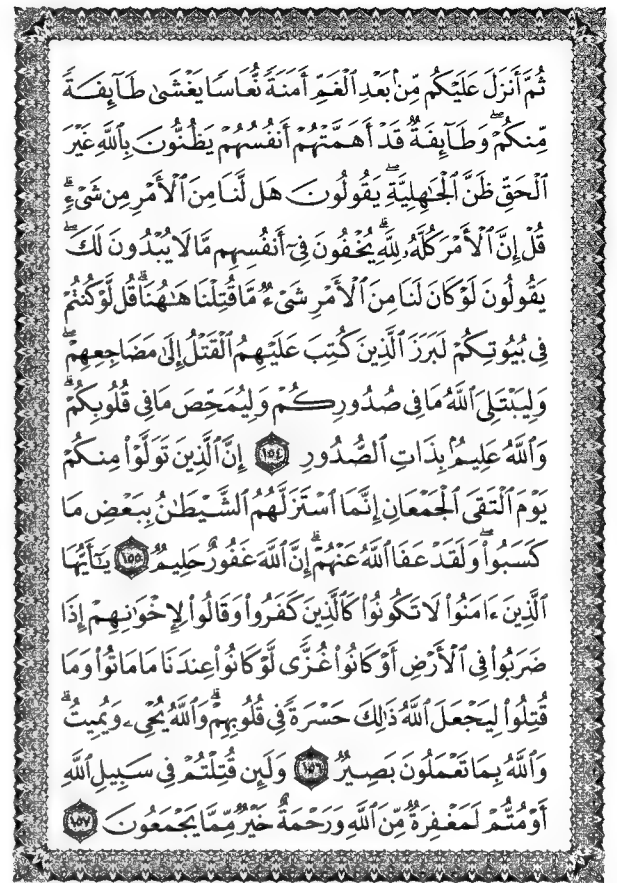 ثُمَّ أَنزَلَ عَلَيْكُم مِّنۢ بَعْدِ ٱلْغَمِّ أَمَنَةً نُّعَاسًا يَغْشَىٰ طَآئِفَةً
مِّنكُمْ ۖ وَطَآئِفَةٌ قَدْ أَهَمَّتْهُمْ أَنفُسُهُمْ يَظُنُّونَ بِٱللَّهِ غَيْرَ
ٱلْحَقِّ ظَنَّ ٱلْجَٰهِلِيَّةِ ۖ يَقُولُونَ هَل لَّنَا مِنَ ٱلْأَمْرِ مِن شَىْءٍ ۗ
قُلْ إِنَّ ٱلْأَمْرَ كُلَّهُۥ لِلَّهِ ۗ يُخْفُونَ فِىٓ أَنفُسِهِم مَّا لَا يُبْدُونَ لَكَ ۖ
يَقُولُونَ لَوْ كَانَ لَنَا مِنَ ٱلْأَمْرِ شَىْءٌ مَّا قُتِلْنَا هَٰهُنَا ۗ قُل لَّوْ كُنتُمْ
فِى بُيُوتِكُمْ لَبَرَزَ ٱلَّذِينَ كُتِبَ عَلَيْهِمُ ٱلْقَتْلُ إِلَىٰ مَضَاجِعِهِمْ ۖ
وَلِيَبْتَلِىَ ٱللَّهُ مَا فِى صُدُورِكُمْ وَلِيُمَحِّصَ مَا فِى قُلُوبِكُمْ ۗ
وَٱللَّهُ عَلِيمٌۢ بِذَاتِ ٱلصُّدُورِ ١٥٤ إِنَّ ٱلَّذِينَ تَوَلَّوْا۟ مِنكُمْ
يَوْمَ ٱلْتَقَى ٱلْجَمْعَانِ إِنَّمَا ٱسْتَزَلَّهُمُ ٱلشَّيْطَٰنُ بِبَعْضِ مَا
كَسَبُوا۟ ۖ وَلَقَدْ عَفَا ٱللَّهُ عَنْهُمْ ۗ إِنَّ ٱللَّهَ غَفُورٌ حَلِيمٌ ١٥٥ يَٰٓأَيُّهَا
ٱلَّذِينَ ءَامَنُوا۟ لَا تَكُونُوا۟ كَٱلَّذِينَ كَفَرُوا۟ وَقَالُوا۟ لِإِخْوَٰنِهِمْ إِذَا
ضَرَبُوا۟ فِى ٱلْأَرْضِ أَوْ كَانُوا۟ غُزًّى لَّوْ كَانُوا۟ عِندَنَا مَا مَاتُوا۟ وَمَا
قُتِلُوا۟ لِيَجْعَلَ ٱللَّهُ ذَٰلِكَ حَسْرَةً فِى قُلُوبِهِمْ ۗ وَٱللَّهُ يُحْىِۦ وَيُمِيتُ ۗ
وَٱللَّهُ بِمَا تَعْمَلُونَ بَصِيرٌ ١٥٦ وَلَئِن قُتِلْتُمْ فِى سَبِيلِ ٱللَّهِ
أَوْ مُتُّمْ لَمَغْفِرَةٌ مِّنَ ٱللَّهِ وَرَحْمَةٌ خَيْرٌ مِّمَّا يَجْمَعُونَ ١٥٧